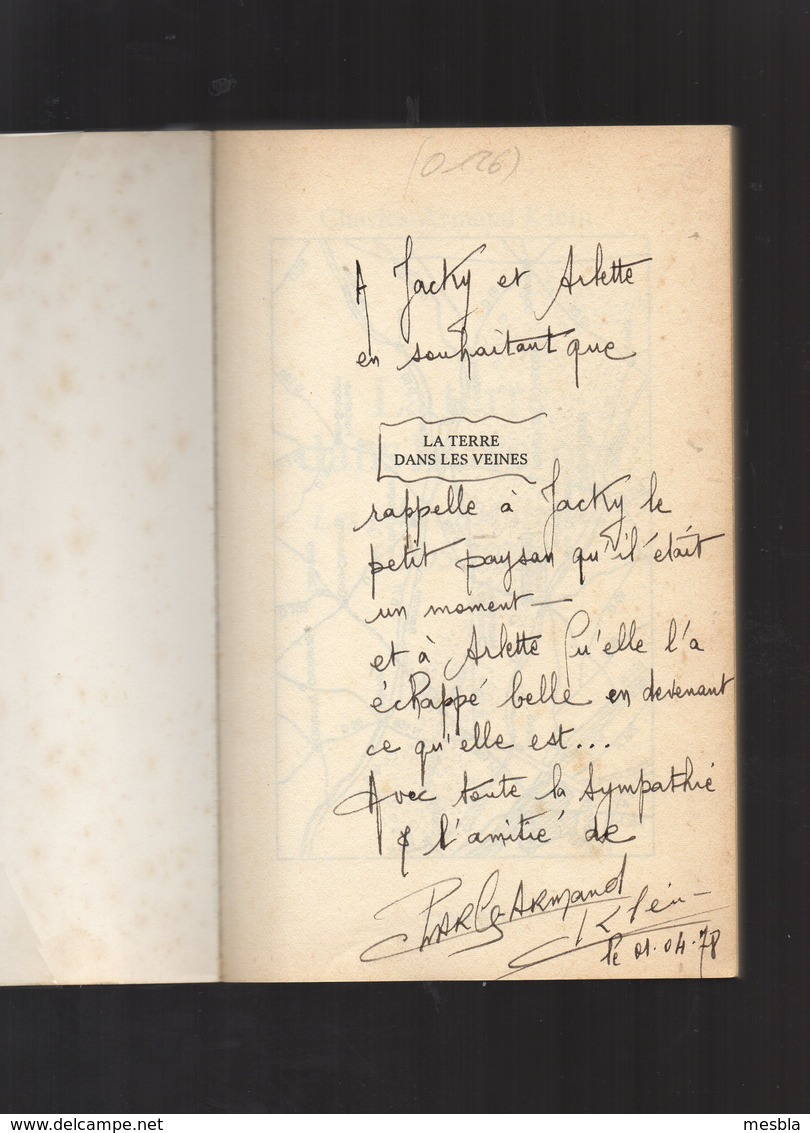 (0126)
A Jacky et Arlette
en souhaitant que
LA TERRE
DANS LES VEINES
rappelle à Jacky le
petit paysan qu'il était
un moment —
et à Arlette Qu'elle l'a
échappé belle en devenant
ce qu'elle est...
Avec toute la sympathie
& l'amitié de
Charles-Armand
Klein
le 01.04.78
delcampe.net
mesbla